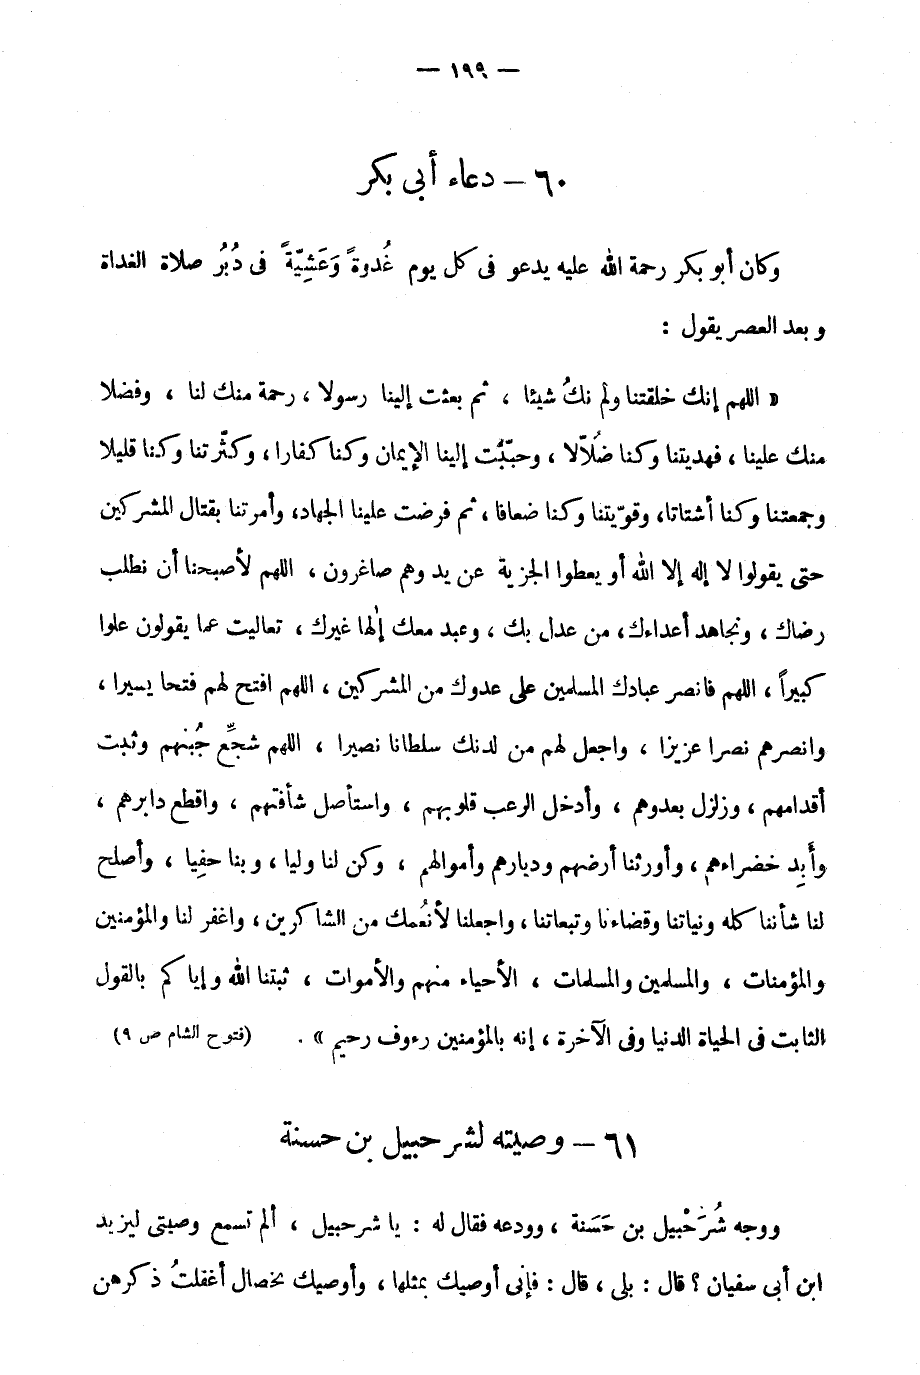 — ١٩٩ —
٦٠ – دعاء أبى بكر
وكان أبو بكر رحمة الله عليه يدعو فى كل يوم غُدوةً وَعَشِيّةً فى دُبُر صلاة الغداة
وبعد العصر يقول :
« اللهم إنك خلقتنا ولم نكُ شيئا ، ثم بعثت إلينا رسولا ، رحمة منك لنا ، وفضلا
منك علينا ، فهديتنا وكنا ضُلّالا ، وحبّبْت إلينا الإيمان وكنا كفارا ، وكثّرتنا وكنا قليلا
وجمعتنا وكنا أشتاتا، وقوّيتنا وكنا ضعافا ، ثم فرضت علينا الجهاد، وأمرتنا بقتال المشركين
حتى يقولوا لا إله إلا الله أو يعطوا الجزية عن يد وهم صاغرون ، اللهم لأصبحنا أن نطلب
رضاك ، ونجاهد أعداءك، من عدل بك ، وعبد معك إلٰها غيرك ، تعاليت عما يقولون علوا
كبيراً ، اللهم فانصر عبادك المسلمين على عدوك من المشركين ، اللهم افتح لهم فتحا يسيرا ،
وانصرهم نصرا عزيزا ، واجعل لهم من لدنك سلطانا نصيرا ، اللهم شجِّع جُبنهم وثبت
أقدامهم ، وزلزل بعدوهم ، وأدخل الرعب قلوبهم ، واستأصل شأفتهم ، واقطع دابرهم ،
وأَبِد خضراءهم ، وأورثنا أرضهم وديارهم وأموالهم ، وكن لنا وليا ، وبنا حفِيا ، وأصلح
لنا شأننا كله ونياتنا وقضاءنا وتبعاتنا ، واجعلنا لأنعُمك من الشاكرين ، واغفر لنا والمؤمنين
والمؤمنات ، والمسلمين والمسلمات ، الأحياء منهم والأموات ، ثبتنا الله وإياكم بالقول
الثابت فى الحياة الدنيا وفى الآخرة ، إنه بالمؤمنين رءوف رحيم » . (فتوح الشام ص ٩)
٦١ – وصيته لشرحبيل بن حسنة
ووجه شُرَحْبيل بن حَسَنة ، وودعه فقال له : يا شرحبيل ، ألم تسمع وصيتى ليزيد
ابن أبى سفيان ؟ قال : بلى ، قال : فإنى أوصيك بمثلها ، وأوصيك بخصال أغفلتُ ذكرهن